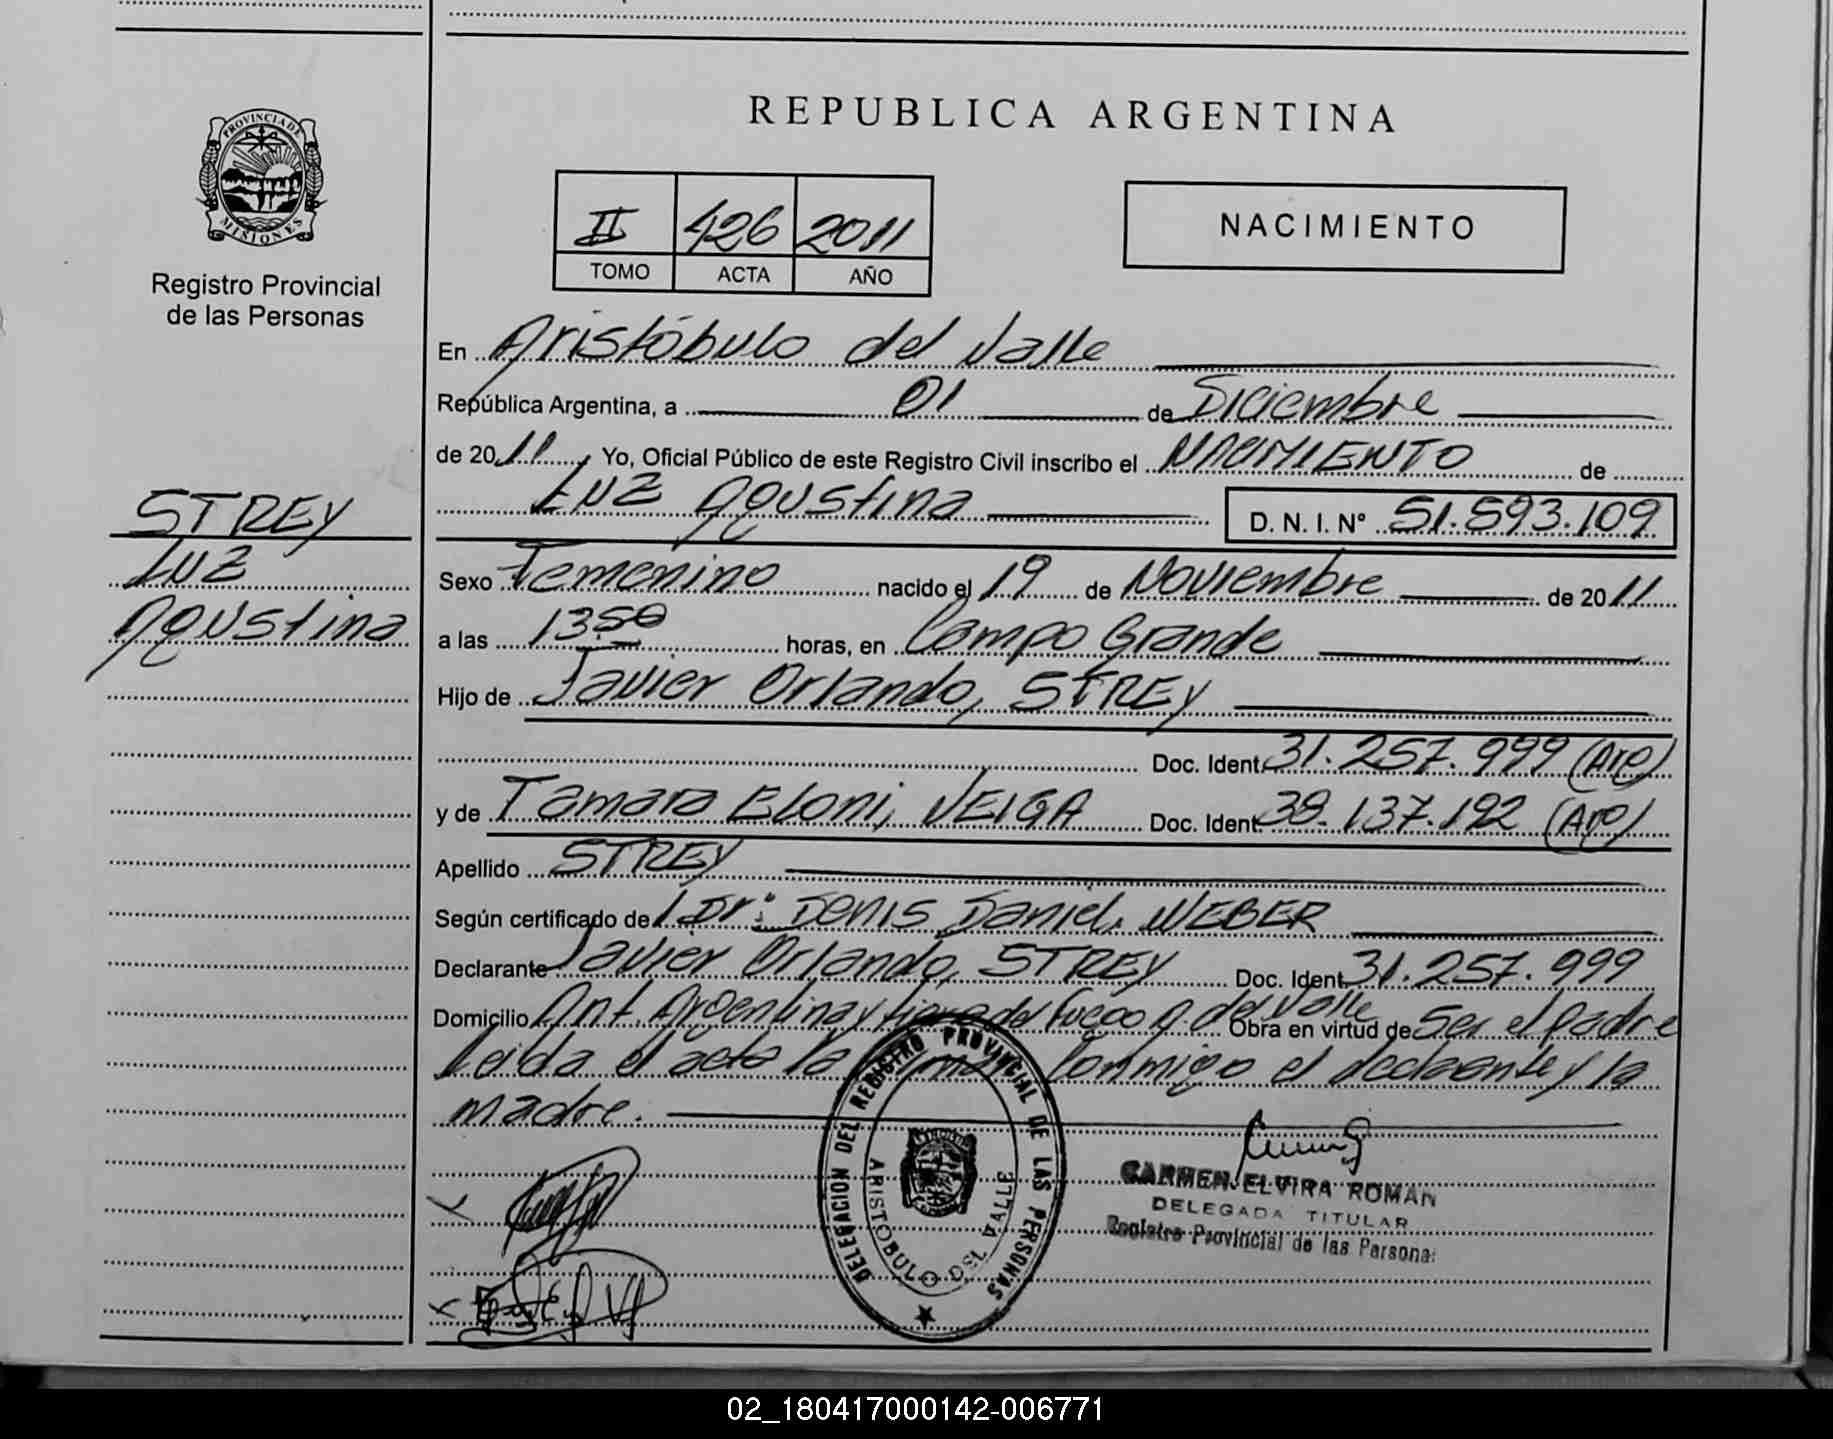 PROVINCIA DE
MISIONES
Registro Provincial
de las Personas
STREY
LUZ
Agustina
REPUBLICA ARGENTINA
II 426 2011
TOMO ACTA AÑO
NACIMIENTO
En Aristóbulo del Valle
República Argentina, a 01 de Diciembre
de 2011 Yo, Oficial Público de este Registro Civil inscribo el NACIMIENTO de
LUZ Agustina D. N. I. Nº 51.593.109
Sexo Femenino nacido el 19 de Noviembre de 2011
a las 13:50 horas, en Campo Grande
Hijo de Javier Orlando, STREY
Doc. Ident. 31.257.999 (Arg)
y de Tamara Eloni, VEIGA Doc. Ident. 38.137.192 (Arg)
Apellido STREY
Según certificado de Dr: Denis Daniel, WEBER
Declarante Javier Orlando, STREY Doc. Ident. 31.257.999
Domicilio Ant. Argentina y tierra del Fuego A. del Valle Obra en virtud de Ser el padre
Leída el acta la conmigo el declarante y la
madre.
DELEGACION DEL REGISTRO PROVINCIAL DE LAS PERSONAS
ARISTOBULO DEL VALLE
CARMEN ELVIRA ROMAN
DELEGADA TITULAR
Registro Provincial de las Personas
02_180417000142-006771